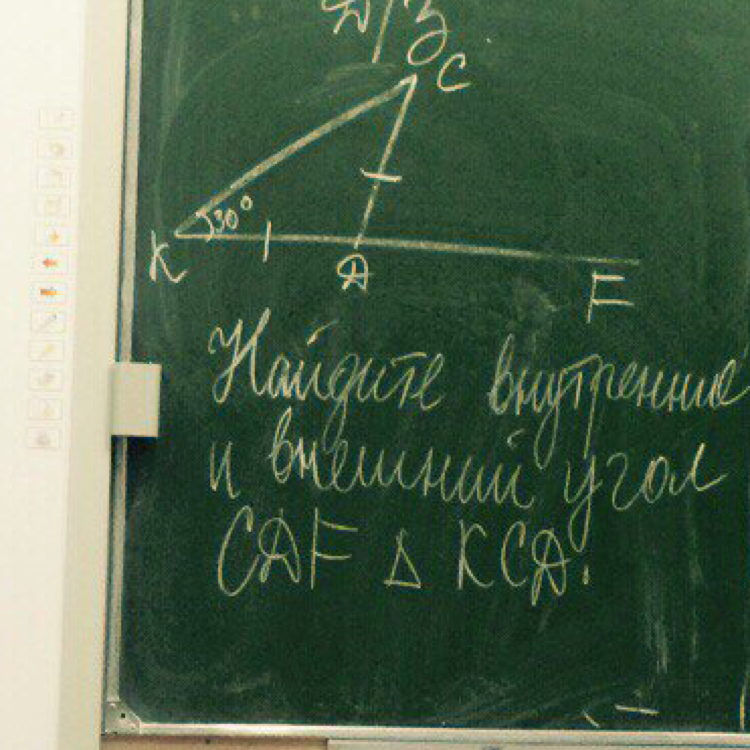 Д/З
C
30°
K
Д
F
Найдите внутренние
и внешний угол
CДF Δ KCД.